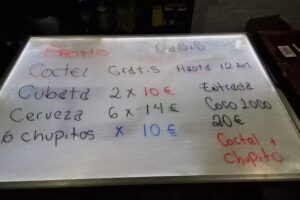 PROMO Oasis
Coctel Gratis Hasta 12 am
Cubata 2 x 10 €
Cerveza 6 x 14 €
6 chupitos x 10 €
Entrada
Coco 2000
20 €
Coctel +
chupito